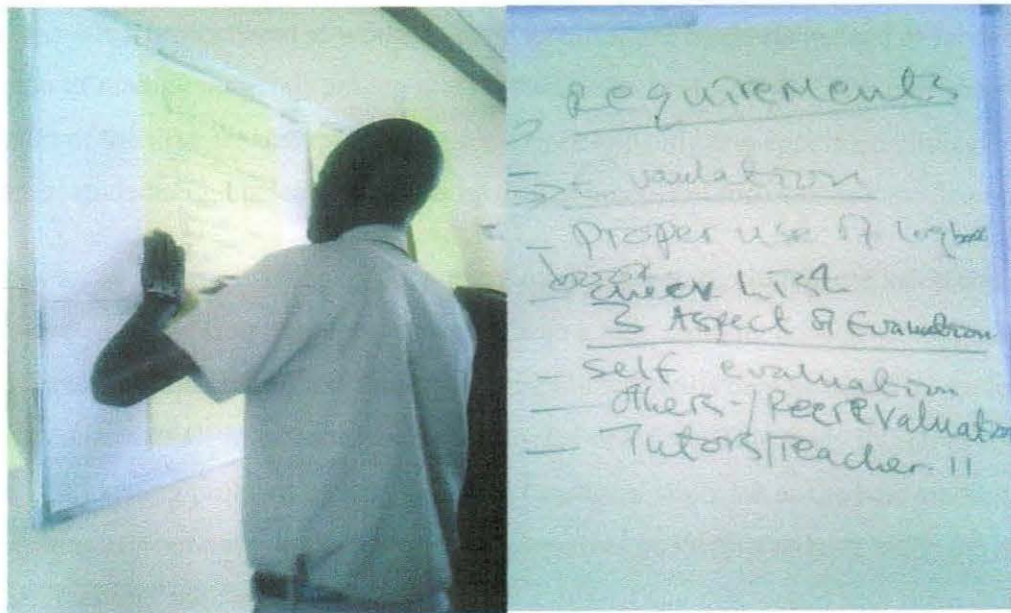 Requirements
Evaulation
- Proper use of logbook
Check List
3 Aspect of Evaluation
- Self evaluation
- Others - / Peer Evaluation
- Tutors/Teacher. 11